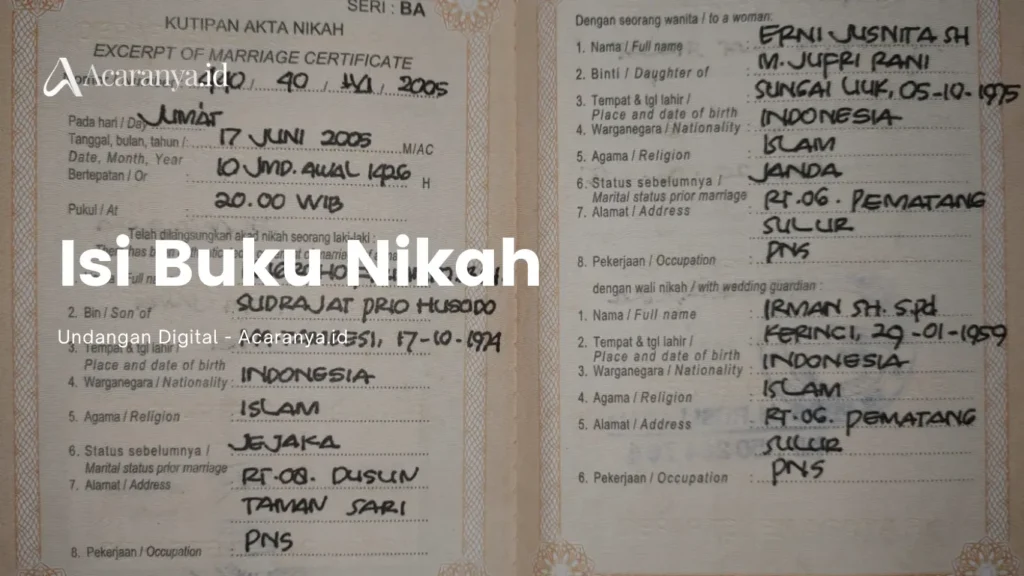 SERI : BA
KUTIPAN AKTA NIKAH
EXCERPT OF MARRIAGE CERTIFICATE
Acaranya.id
40 / 2005
Pada hari / Day JUMAT
Tanggal, bulan, tahun / : 17 JUNI 2005 M/AC
Date, Month, Year
Bertepatan / Or : 10 JMD. AWAL 1426 H
Pukul / At : 20.00 WIB
Telah dilangsungkan akad nikah seorang laki-laki :
Isi Buku Nikah
Full name
2. Bin / Son of SUDRAJAT PRIO HUSODO
Undangan Digital - Acaranya.id
17-10-1974
3. Tempat & tgl lahir /
Place and date of birth
4. Warganegara / Nationality : INDONESIA
5. Agama / Religion : ISLAM
6. Status sebelumnya / : JEJAKA
Marital status prior marriage
7. Alamat / Address : RT.08. DUSUN
TAMAN SARI
8. Pekerjaan / Occupation : PNS
Dengan seorang wanita / to a woman:
1. Nama / Full name : ERNI JUSNITA SH
2. Binti / Daughter of : M. JUFRI RANI
3. Tempat & tgl lahir / : SUNGAI LIUK, 05-10-1975
Place and date of birth
4. Warganegara / Nationality : INDONESIA
5. Agama / Religion : ISLAM
6. Status sebelumnya / : JANDA
Marital status prior marriage
7. Alamat / Address : RT.06. PEMATANG
SULUR
8. Pekerjaan / Occupation : PNS
dengan wali nikah / with wedding guardian :
1. Nama / Full name : IRMAN SH. S.Pd
2. Tempat & tgl lahir / : KERINCI, 29-01-1959
Place and date of birth
3. Warganegara / Nationality : INDONESIA
4. Agama / Religion : ISLAM
5. Alamat / Address : RT.06. PEMATANG
SULUR
6. Pekerjaan / Occupation : PNS